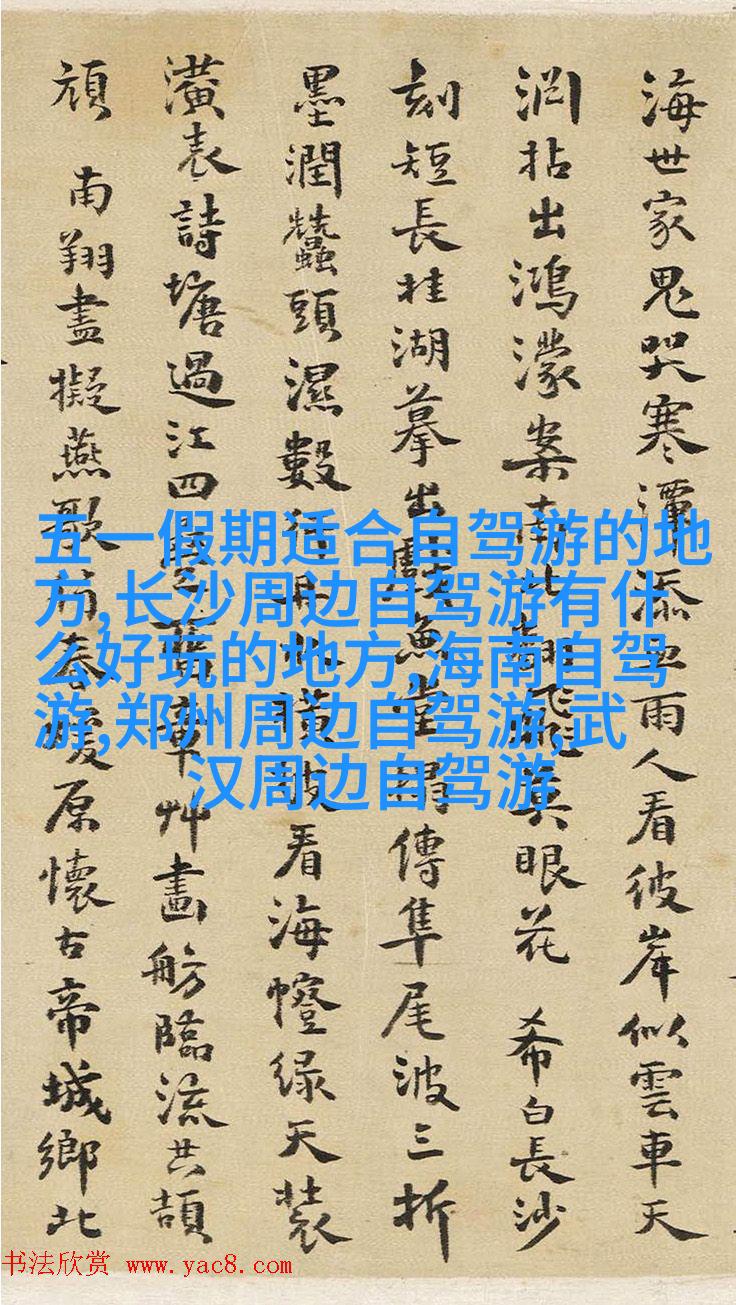 海世家鬼哭寒潭添血雨人看彼岸似雲車天
淵拈出鴻濛案南北眼花 希白長沙
刻短長桂湖摹出戲魚堂傳隼尾波三折
墨潤蠶頭濕數行看海幢綠天裝
潢表詩塘過江四章艸畫舫臨流共頡
頏 南翔盡擬燕歌春暖原懷古帝城鄉北
五一假期适合自驾游的地
方,长沙周边自驾游有什
么好玩的地方,海南自驾
游,郑州周边自驾游,武
汉周边自驾游
书法欣赏 www.yac8.com